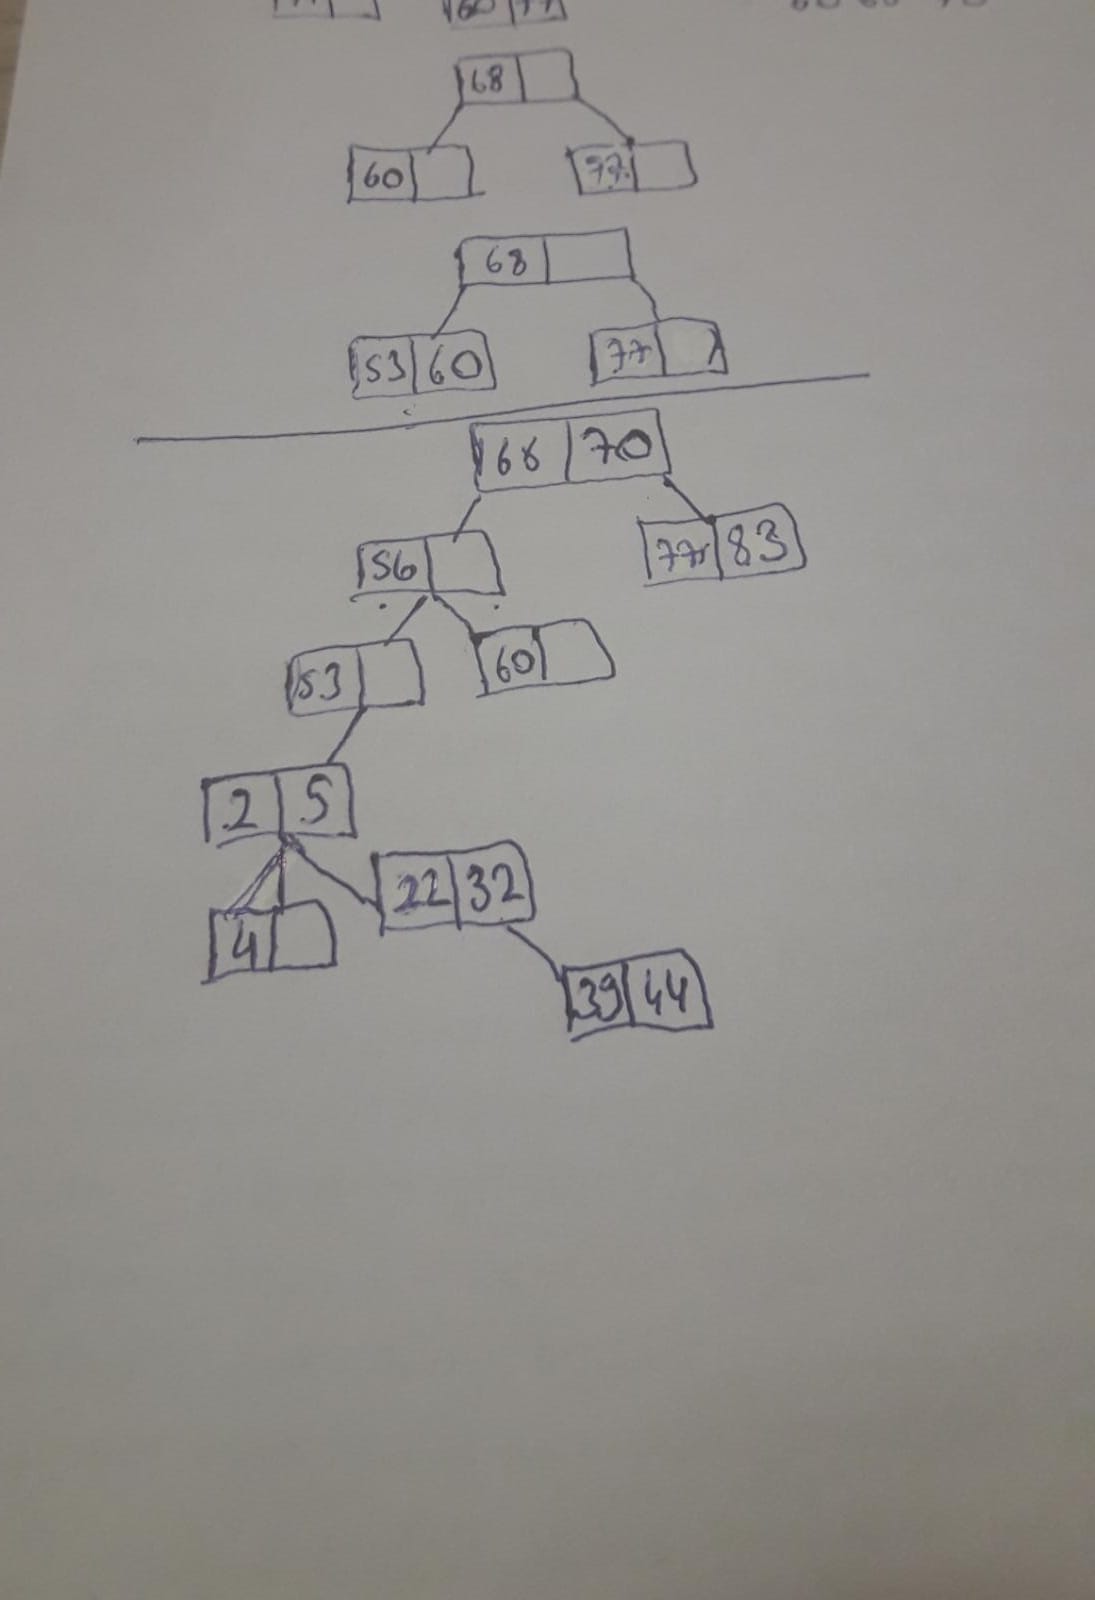 60 77
68
60 77
68
53 60 77
68 70
56 77 83
53 60
2 5
22 32
4
39 44